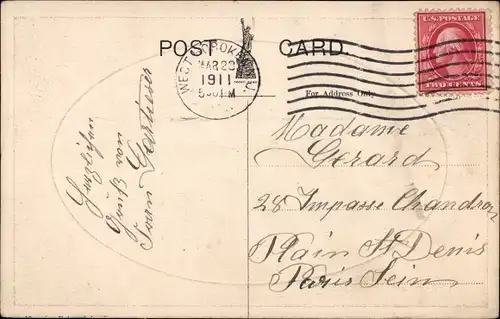 POST CARD.
WEST HOBOKEN N.J.
MAR 22
1911
5 30 PM
U.S. POSTAGE
TWO CENTS
For Address Only
Herzlichen
Gruß von
Madame
Gerard
28 Impasse Chandron
Plain St Denis
Paris Sein